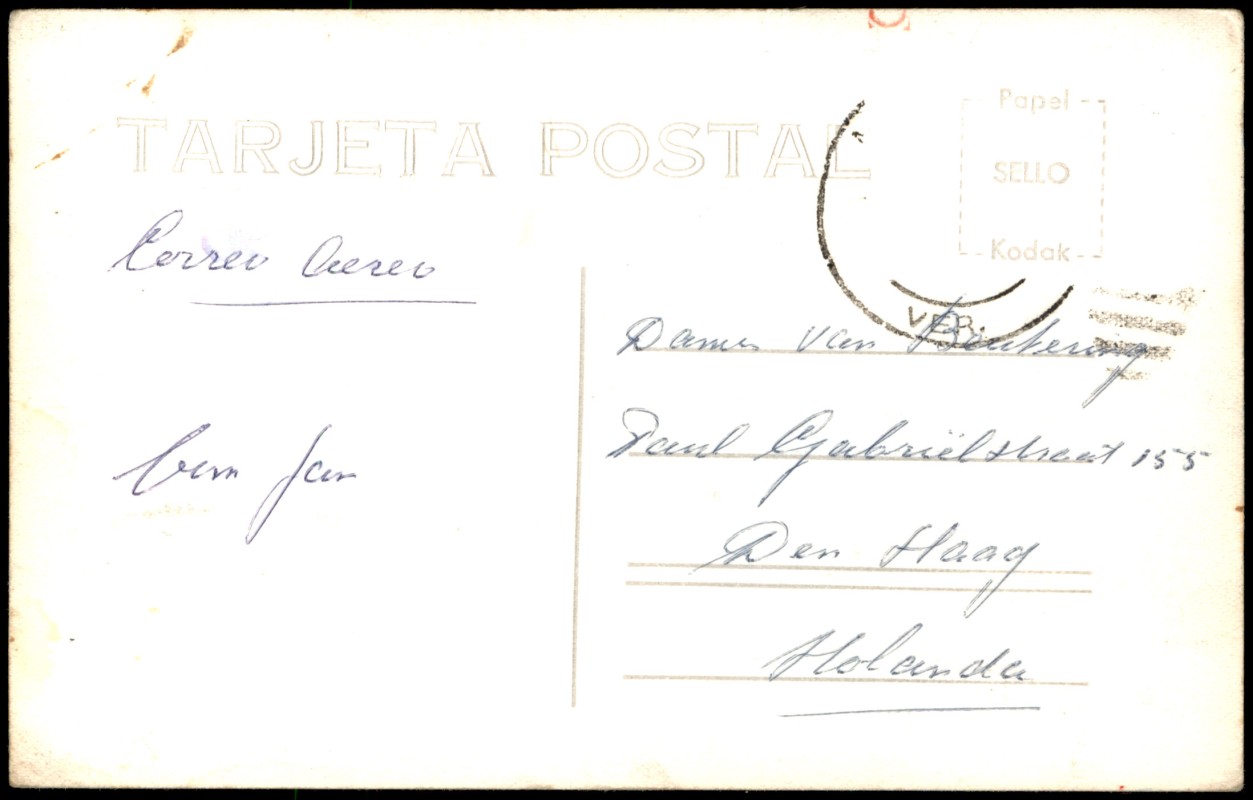 TARJETA POSTAL
Papel
SELLO
Kodak
Correo Aereo
VER.
Dames van Beutering
Paul Gabriëlstraat 155
Jan
Den Haag
Holanda